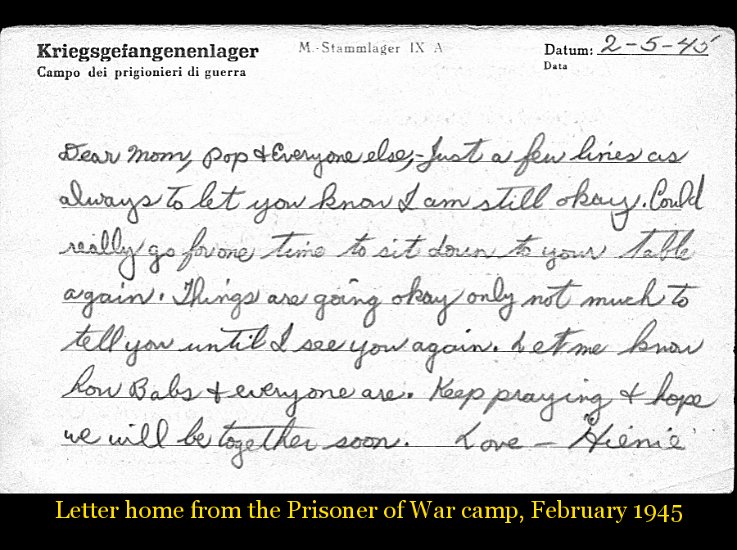 Kriegsgefangenenlager M.-Stammlager IX A Datum: 2-5-45
Campo dei prigionieri di guerra Data
Dear Mom, Pop & Everyone else,- Just a few lines as
always to let you know I am still okay. Could
really go for one time to sit down to your table
again. Things are going okay only not much to
tell you until I see you again. Let me know
how Babs & everyone are. Keep praying & hope
we will be together soon. Love - "Hienie"
Letter home from the Prisoner of War camp, February 1945